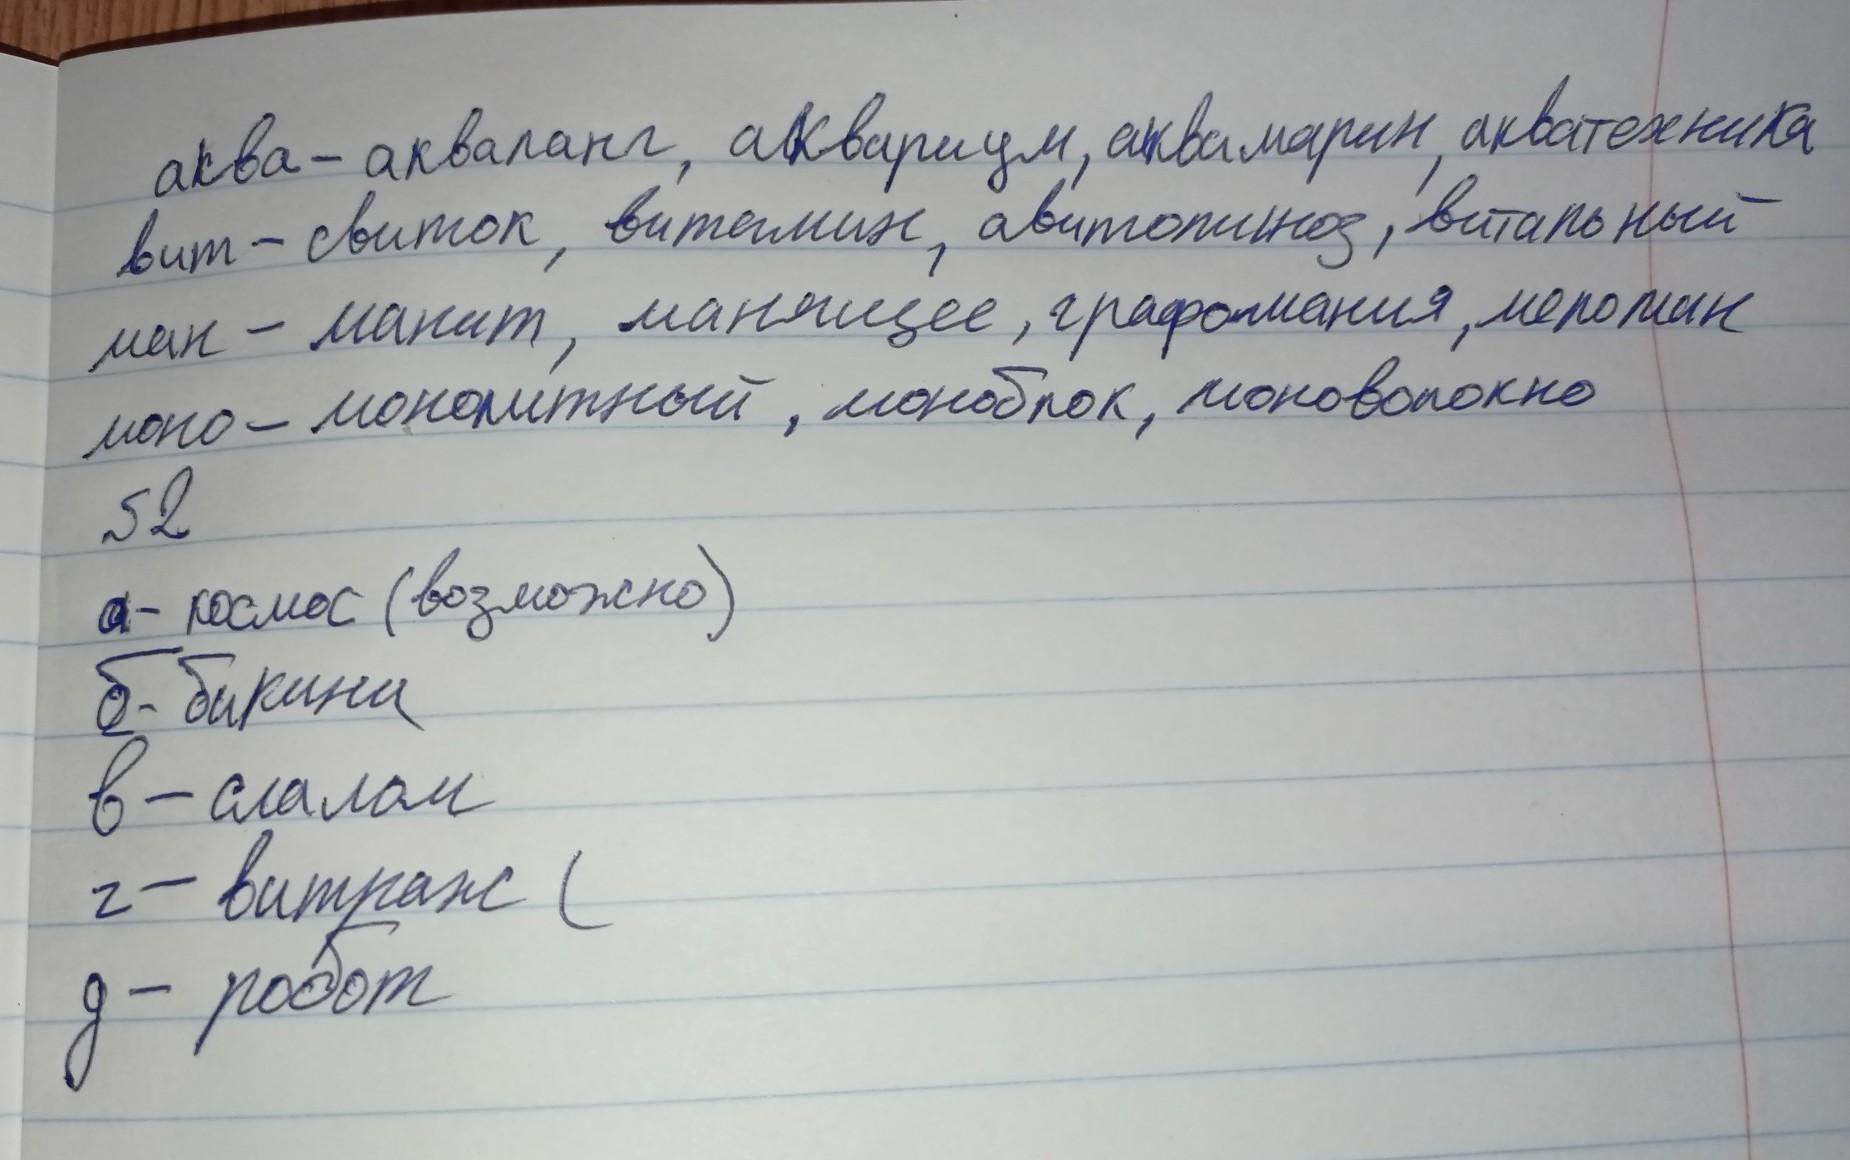 аква - акваланг, аквариум, аквамарин, акватехника
вит - свиток, витамин, авитоминоз, витальный
ман - манит, манящее, графомания, меломан
моно - монолитный, моноблок, моноволокно
52
а - космос (возможно)
б - бикини
в - слалом
г - витраж (
д - робот